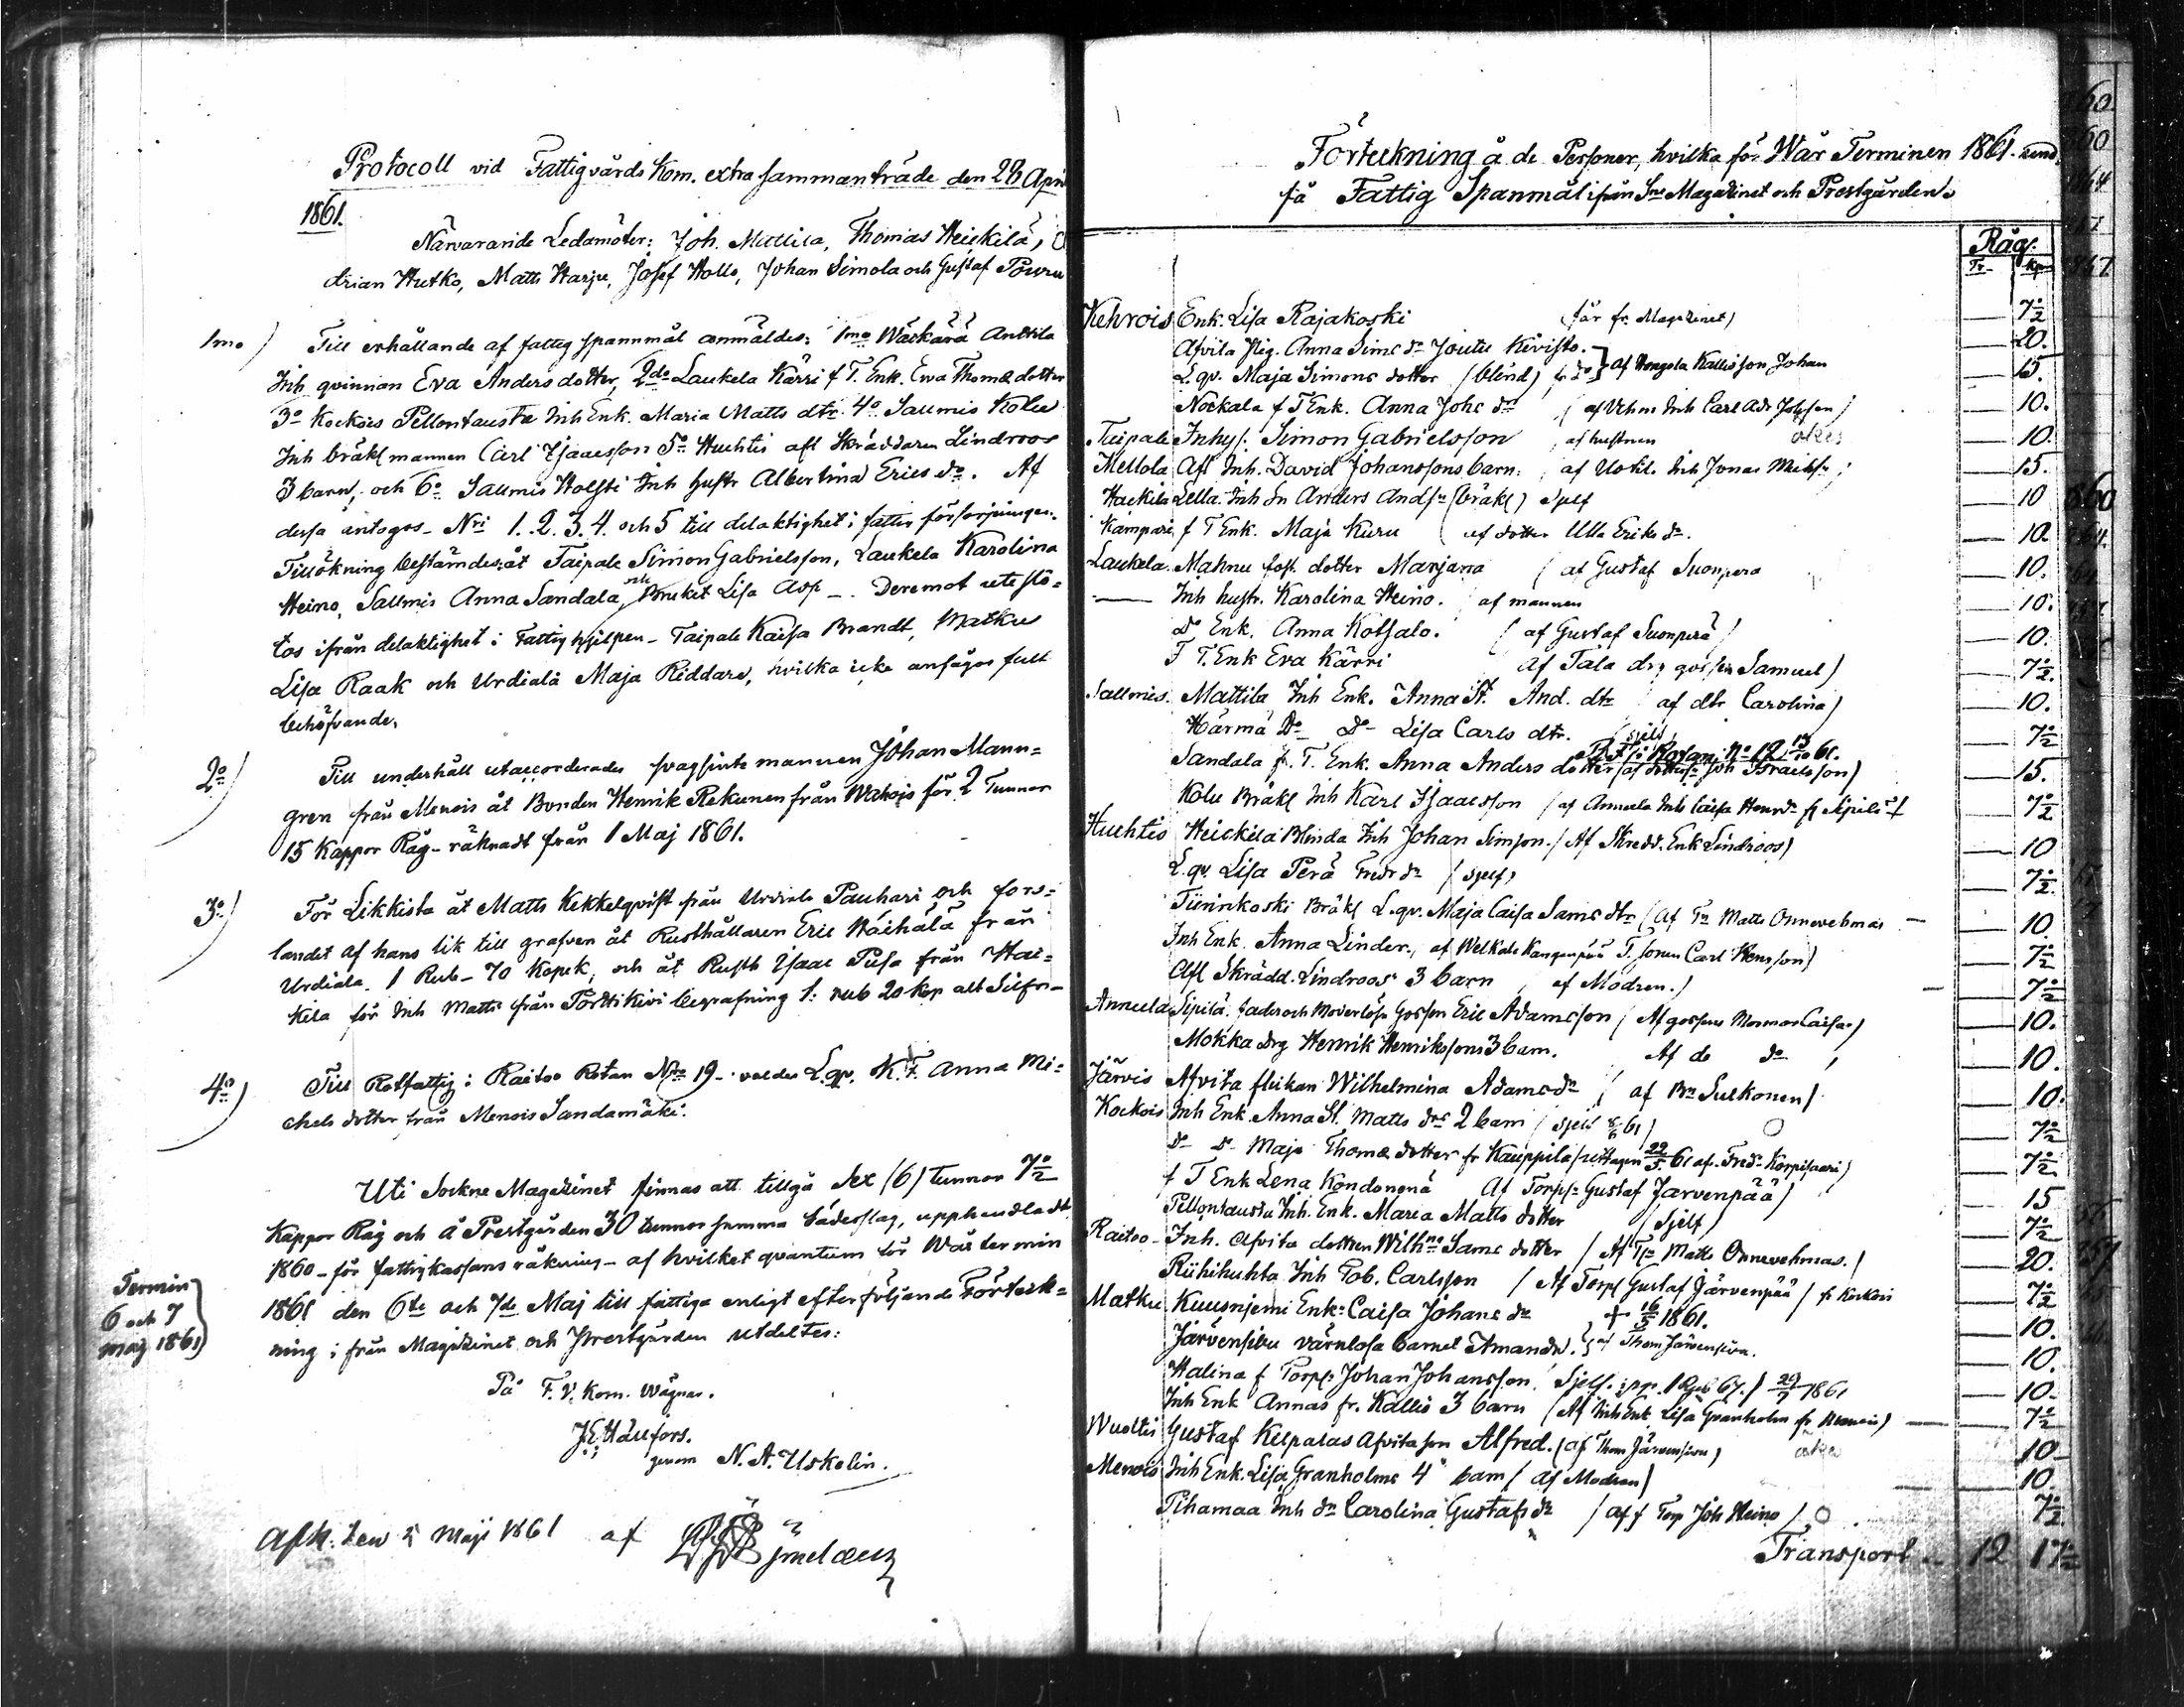 Protocoll vid Fattigvårds Kom. extra sammanträde den 28 Apri
1861.
Närvarande Ledamöter: Joh. Mattila, Thomas Heickilä,
drian Hutko, Matts Harju, Josef Hollo, Johan Simola och Gustaf
1mo) Till erhållande af fattig spannmål anmäldes: 1mo Wäckärä Anttila
Inh qvinnan Eva Anders dotter, 2do Laukela Kärri f T. Enk. Ewa Thomæ dotter
3o Kockois Pellontausta Inh Enk. Maria Matts dtr. 4o Salmis Kolu
Inh bräkl mannen Carl Isaacsson 5o Huchtis afl Skräddaren Lindroos
3 barn, och 6o Sallmis Holsti Inh hustr Albertina Erics do. Af
dessa antogos Nri 1. 2. 3. 4. och 5 till delaktighet i fattig försörjningen.
Tillökning bestämdes åt Taipale Simon Gabrielsson, Laukela Karolina
Heino, Sallmis Anna Sandala och Bruket Lisa Asp. Deremot uteslö=
tos ifrån delaktighet i Fattighjelpen Taipale Kaisa Brandt, Matku
Lisa Raak och Urdiala Maja Riddare, hvilka icke ansågos fullt
behöfvande.
2o) Till underhåll utaccorderades svagsinte mannen Johan Mann=
gren från Menois åt Bonden Henrik Rekunen från Wahois för 2 Tunnor
15 Kappor Råg räknadt från 1 Maj 1861.
3o) För Likkista åt Matts Kekkelqvist från Urdiala Pauhari och fors=
landet af hans lik till grafven åt Rusthållaren Eric Haihälä från
Urdiala 1 Rub 70 Kopek, och åt Rusth Isaac Pusa från Hai=
kila för Inh Matts från Porttikivi begrafning 1: rub 20 kop allt Silfr
4o) Till Rotfattig i Raitoo Rotan Nro 19 valdes L.qv. Anna Mi=
chels dotter från Menois Sandamäki.
Uti Sockne Magazinet finnas att tillgå Sex (6) tunnor 7½
Kappor Råg och å Prestgården 30 tunnor samma Sädesslag, upphandladt
1860 för fattigkassans räkning af hvilket qvantum för Wår termin
1861 den 6te och 7de Maj till fattiga enligt efterföljande Förteck=
ning ifrån Magazinet och Prestgården utdeltes:
Termin
6 och 7
maj 1861
På F. V. Kom. Wägnar.
genom N. A. Uskelin.
Afh. den 5 Maji 1861 af
Förteckning å de Personer, hvilka för Wår Terminen 1861
få Fattig Spanmål ifrån Sne Magazinet och Prestgården
Råg.
Tr. Kp
Kehrois Enk. Lisa Rajakoski (får fr. Magazinet) 7½
Afvita flig. Anna Sims dr Joutu Kivisto. 20.
L. qv. Maja Simons dotter (blind) af Hongola Kallis son Johan 15.
Nockala f T Enk. Anna Johs dr 10.
Taipale Inhys. Simon Gabrielsson af hustrun 10.
Kellola Afl Inh. David Johanssons barn: 15.
Haikila Lella. Inh Sn Anders Andsn (bräkl) Sjelf 10
Kampari f T Enk. Maja Kuru af dotter Ulla Eriks dr. 10.
Laukela. Mahnu fost dotter Marjana (af Gustaf Suonperä 10.
Inh hustr. Karolina Heino. af mannen 10.
Do Enk. Anna Kotsalo. (af Gustaf Suonperä) 10.
F T. Enk Eva Kärri af Tala drg gossen Samuel) 7½
Sallmis. Mattila Inh Enk. Anna St. And. dtr af dtr Carolina) 10.
Härmä Do Do Lisa Carls dtr. (sjelf) 7½
Sandala f. T. Enk. Anna Anders dotter Joh Israelsson) 15.
Kolu Bräkl Inh Karl Isaacsson 7½
Huchtis Heickilä Blinda Inh Johan Simson. (Af Skredd. Enk Lindroos) 10
L. qv. Lisa Perä Fredr dr (Sjelf) 7½
Tiinnikoski Bräkl L.qv. Maja Caisa Sams dtr (Af Tr Matts Onnvehmas 10.
Inh Enk. Anna Linder. 7½
Afl Skrädd. Lindroos 3 barn af Modren.) 7½
Annula Sipilä. fader och Moderlösa Gossen Eric Adamsson (Af gossens Mormor Caisa) 10.
Mokka drg Henrik Henrikssons 3 barn. Af do do 10.
Järvis Afvita flickan Wilhelmina Adams dr (af Bn Sulkonen) 10.
Kockois Inh Enk. Anna St. Matts drs 2 barn 7½
Do Do Maja Thomæ dotter fr Kauppila 7½
f T Enk Lena Kondonenä Af Torpr Gustaf Jarvenpää) 15
Pellontausta Inh. Enk. Maria Matts dotter (Sjelf) 7½
Raitoo Inh. Afvita dottren Wilhne Sams dotter (Af Tr Matts Onnevehmas.) 20.
Riihihuhta Inh Tob. Carlsson (Af Torp Gustaf Järvenpää) fr Kockois 7½
Matku Kuusniemi Enk: Caisa Johans dr + 16/5 1861. 10.
Järvensivu värnlösa barnet Amanda. af Thom Järvensivu. 10.
Halina f Torpr Johan Johansson 10.
Inh Enk Annas fr. Kallio 3 barn (Af Inh Enk Lisa Granholm fr Menois) 7½
Wuoltis Gustaf Kilpalas Afvita son Alfred. (af Thom Järvensivu) 10
Menois Inh Enk. Lisa Granholms 4 barn (af Modren) 10.
Pihamaa Inh dr Carolina Gustafs dr (af f Torp Joh Heino) 7½
Transport 12 17½